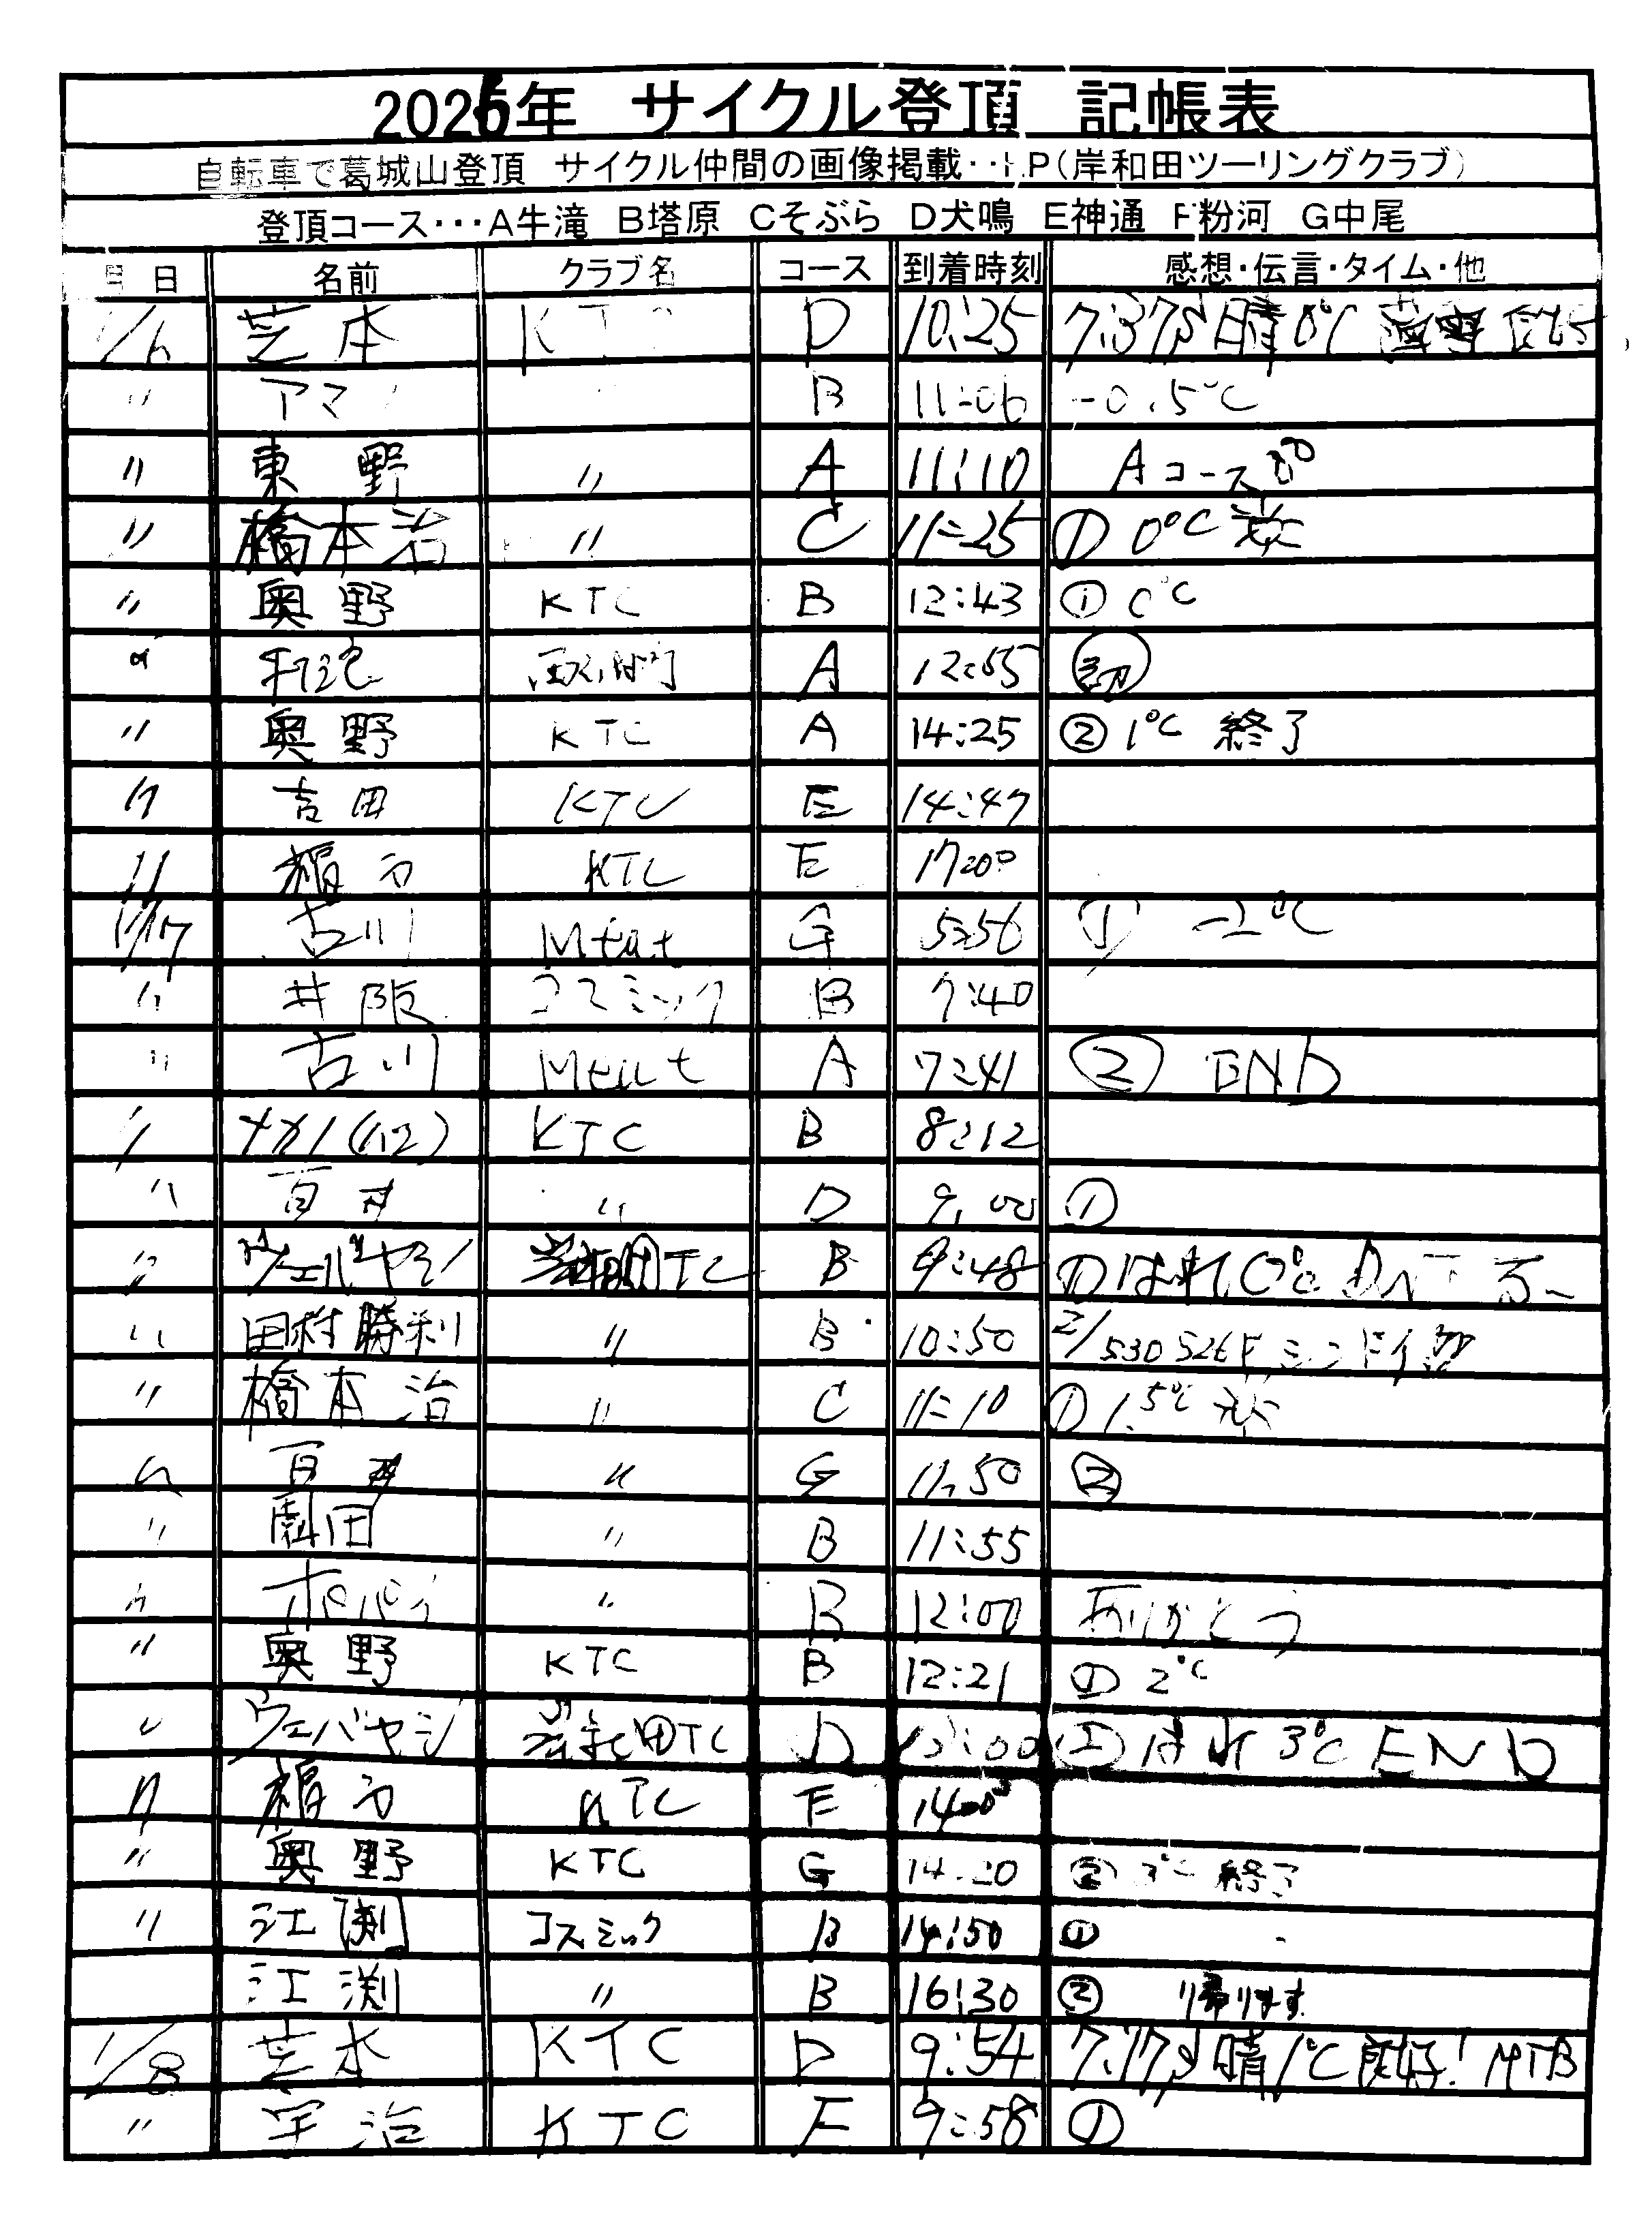 2026年 サイクル登頂 記帳表
自転車で葛城山登頂 サイクル仲間の画像掲載‥H.P(岸和田ツーリングクラブ)
登頂コース‥‥A牛滝 B塔原 Cそぶら D犬鳴 E神通 F粉河 G中尾
月 日 名前 クラブ名 コース 到着時刻 感想・伝言・タイム・他
1/6 芝本 KT D 10:25 晴 0℃
〃 アマ B 11:06 -0.5℃
〃 東野 〃 A 11:10 Aコース
〃 橋本治 〃 C 11:25 ① 0℃
〃 奥野 KTC B 12:43 ① 0℃
〃 A 12:55 初
〃 奥野 KTC A 14:25 ② 1℃ 終了
〃 吉田 KTC E 14:47
〃 KTC E 17:00
1/7 古川 Mtat G 5:56 ①
〃 井阪 コスミック B 7:40
〃 古川 A 7:41 ② END
〃 KTC B 8:12
〃 百井 〃 D 9:00 ①
〃 ウエバヤシ 岸和田TC B 9:48 ①はれ 0℃
〃 田村勝利 〃 B 10:50
〃 橋本治 〃 C 11:10 ① 1.5℃
〃 百井 〃 G 11:50 ②
〃 〃 B 11:55
〃 〃 B 12:00 ありがとう
〃 奥野 KTC B 12:21 ① 2℃
〃 ウエバヤシ 岸和田TC D ②はれ 3℃ END
〃 KTC E 14:00
〃 奥野 KTC G 14:20 ② 3℃ 終了
〃 江渕 コスミック B 14:50 ①
江渕 〃 B 16:30 ② 帰ります
1/8 芝本 KTC D 9:54 晴 1℃ 良好! MTB
〃 宇治 KTC F 9:58 ①